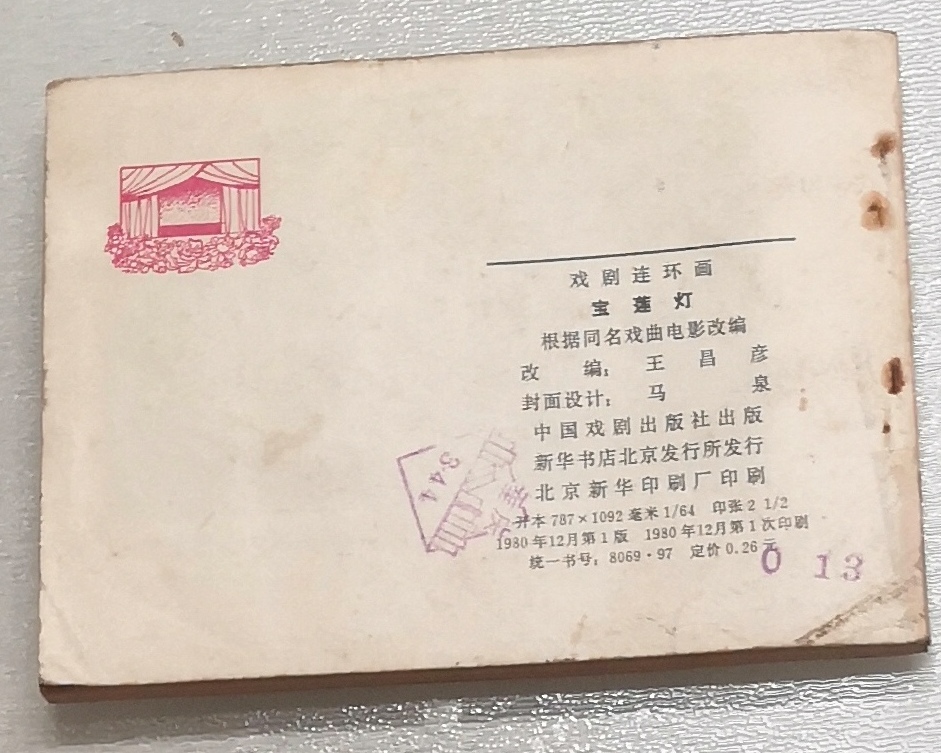 戏剧连环画
宝莲灯
根据同名戏曲电影改编
改编：王昌彦
封面设计：马泉
中国戏剧出版社出版
新华书店北京发行所发行
北京新华印刷厂印刷
开本 787×1092 毫米 1/64 印张 2 1/2
1980年12月第1版 1980年12月第1次印刷
统一书号：8069·97 定价 0.26 元
344
0 13